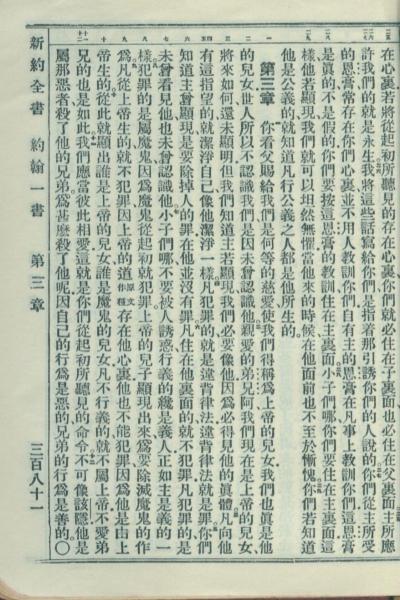 在心裏若將從起初所聽見的存在心裏你們就必住在子裏面也必住在父裏面主所應
許我們的就是永生我將這些話寫給你們是指着那引誘你們的人說的你們從主所受
的恩膏常存在你們心裏並不用人教訓你們自有主的恩膏在凡事上教訓你們這恩膏
是眞的不是假的你們要按這恩膏的教訓住在主裏面小子們哪你們要住在主裏面這
樣他若顯現我們就可以坦然無懼當他來的時候在他面前也不至於慚愧你們若知道
他是公義的就知道凡行公義之人都是他所生的
第三章 你看父賜給我們是何等的慈愛使我們得稱爲上帝的兒女我們也眞是他
的兒女世人所以不認識我們是因未曾認識他親愛的弟兄阿我們現在是上帝的兒女
將來如何還未顯明但我們知道主若顯現我們必要像他因爲必得見他的眞體凡向他
有這指望的就潔淨自己像他潔淨一樣凡犯罪的就是違背律法違背律法就是罪你們
知道主曾顯現是要除掉人的罪在他並沒有罪凡住在他裏面的就不犯罪凡犯罪的是
未曾看見他也未曾認識他小子們哪不要被人誘惑行義的纔是義人正如主是義的一
樣犯罪的是屬魔鬼因爲魔鬼從起初就犯罪上帝的兒子顯現出來爲要除滅魔鬼的作
爲凡從上帝生的就不犯罪因上帝的道原文作種存在他心裏他也不能犯罪因爲他是由上
帝生的從此就顯出誰是上帝的兒女誰是魔鬼的兒女凡不行義的就不屬上帝不愛弟
兄的也是如此我們應當彼此相愛這就是你們從起初所聽見的命令不可像該隱他是
屬那惡者殺了他的兄弟爲甚麽殺了他呢因自己的行爲是惡的兄弟的行爲是善的〇
新約全書 約翰一書 第三章 三百八十一